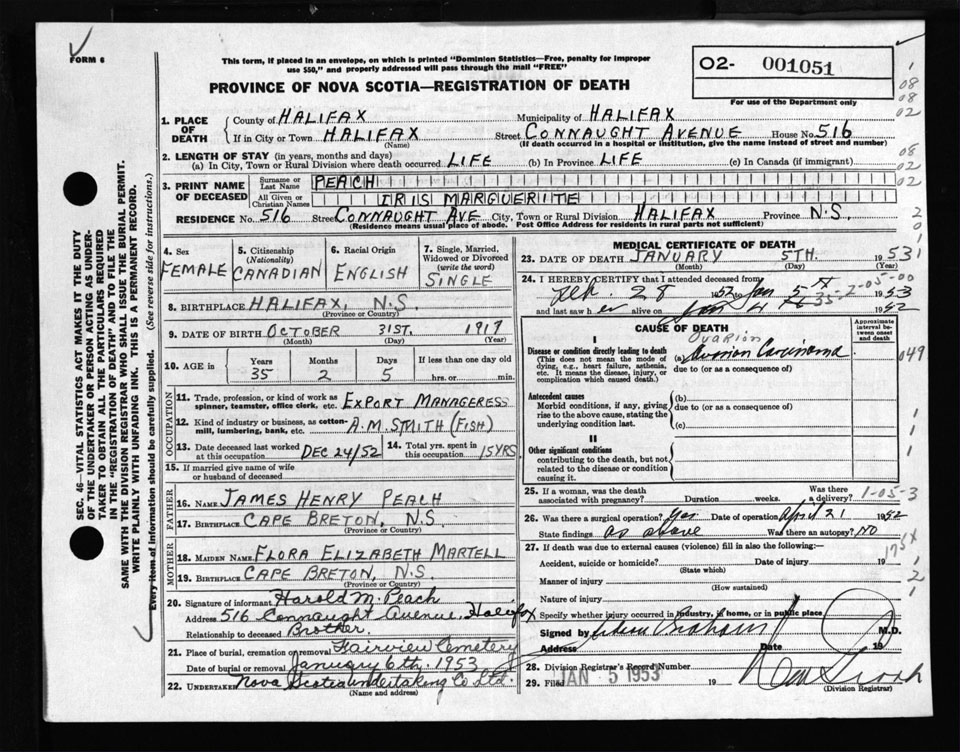 FORM 6
This form, if placed in an envelope, on which is printed "Dominion Statistics—Free, penalty for improper
use $50," and properly addressed will pass through the mail "FREE"
PROVINCE OF NOVA SCOTIA—REGISTRATION OF DEATH
O2- 001051
For use of the Department only
1. PLACE OF DEATH { County of HALIFAX Municipality of HALIFAX
If in City or Town HALIFAX Street CONNAUGHT AVENUE House No. 516
(Name) (If death occurred in a hospital or institution, give the name instead of street and number)
2. LENGTH OF STAY (in years, months and days)
(a) In City, Town or Rural Division where death occurred LIFE (b) In Province LIFE (c) In Canada (if immigrant)
3. PRINT NAME OF DECEASED { Surname or Last Name PEACH
All Given or Christian Names IRIS MARGUERITE
RESIDENCE No. 516 Street CONNAUGHT AVE City, Town or Rural Division HALIFAX Province N.S.
(Residence means usual place of abode. Post Office Address for residents in rural parts not sufficient)
SEC. 46—VITAL STATISTICS ACT MAKES IT THE DUTY
OF THE UNDERTAKER OR PERSON ACTING AS UNDER-
TAKER TO OBTAIN ALL THE PARTICULARS REQUIRED
IN THE "REGISTRATION OF DEATH" AND TO FILE THE
SAME WITH THE DIVISION REGISTRAR WHO SHALL ISSUE THE BURIAL PERMIT.
WRITE PLAINLY WITH UNFADING INK. THIS IS A PERMANENT RECORD.
Every item of information should be carefully supplied. (See reverse side for instructions.)
4. Sex FEMALE
5. Citizenship (Nationality) CANADIAN
6. Racial Origin ENGLISH
7. Single, Married, Widowed or Divorced (write the word) SINGLE
8. BIRTHPLACE HALIFAX, N.S.
(Province or Country)
9. DATE OF BIRTH OCTOBER 31ST. 1917
(Month) (Day) (Year)
10. AGE in { Years 35 Months 2 Days 5 If less than one day old hrs. or min.
OCCUPATION
11. Trade, profession, or kind of work as spinner, teamster, office clerk, etc. EXPORT MANAGERESS
12. Kind of industry or business, as cotton-mill, lumbering, bank, etc. A.M. SMITH (FISH)
13. Date deceased last worked at this occupation DEC 24/52
14. Total yrs. spent in this occupation 15 YRS
15. If married give name of wife or husband of deceased
FATHER
16. Name JAMES HENRY PEACH
17. Birthplace CAPE BRETON, N.S.
(Province or Country)
MOTHER
18. Maiden Name FLORA ELIZABETH MARTELL
19. Birthplace CAPE BRETON, N.S.
(Province or Country)
20. Signature of informant Harold M. Peach
Address 516 Connaught Avenue, Halifax
Relationship to deceased Brother.
21. Place of burial, cremation or removal Fairview Cemetery
Date of burial or removal January 6th. 1953
22. Undertaker Nova Scotia Undertaking Co Ltd.
(Name and address)
MEDICAL CERTIFICATE OF DEATH
23. DATE OF DEATH JANUARY 5TH. 1953
(Month) (Day) (Year)
24. I HEREBY CERTIFY that I attended deceased from
28 1952 to Jan 5 1953
and last saw h er alive on Jan 4 1952
CAUSE OF DEATH
Approximate interval between onset and death
I
Ovarian
Disease or condition directly leading to death (a) Ovarian Carcinoma
(This does not mean the mode of dying, e.g., heart failure, asthenia, etc. It means the disease, injury, or complication which caused death.)
due to (or as a consequence of)
Antecedent causes (b)
Morbid conditions, if any, giving rise to the above cause, stating the underlying condition last.
due to (or as a consequence of)
(c)
II
Other significant conditions
contributing to the death, but not related to the disease or condition causing it.
049
25. If a woman, was the death associated with pregnancy? Duration weeks. Was there a delivery? 1-05-3
26. Was there a surgical operation? Yes Date of operation April 21 1952
State findings as above Was there an autopsy? NO
27. If death was due to external causes (violence) fill in also the following:—
175X
Accident, suicide or homicide? Date of injury 19
(State which)
Manner of injury
(How sustained)
Nature of injury
Specify whether injury occurred in industry, in home, or in public place
Signed by M.D.
Address Date 19
28. Division Registrar's Record Number
29. Filed JAN 5 1953 19
(Division Registrar)